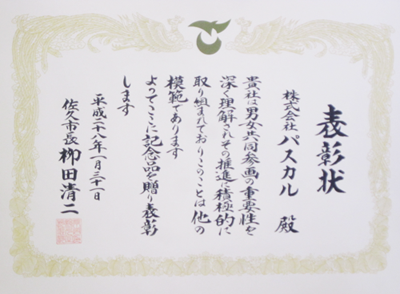 表彰状
株式会社
パスカル 殿
貴社は男女共同参画の重要性を
深く理解されその推進に積極的に
取り組まれておりこのことは他の
模範であります
よってここに記念品を贈り表彰
します
平成二十八年一月三十一日
佐久市長 栁田清二